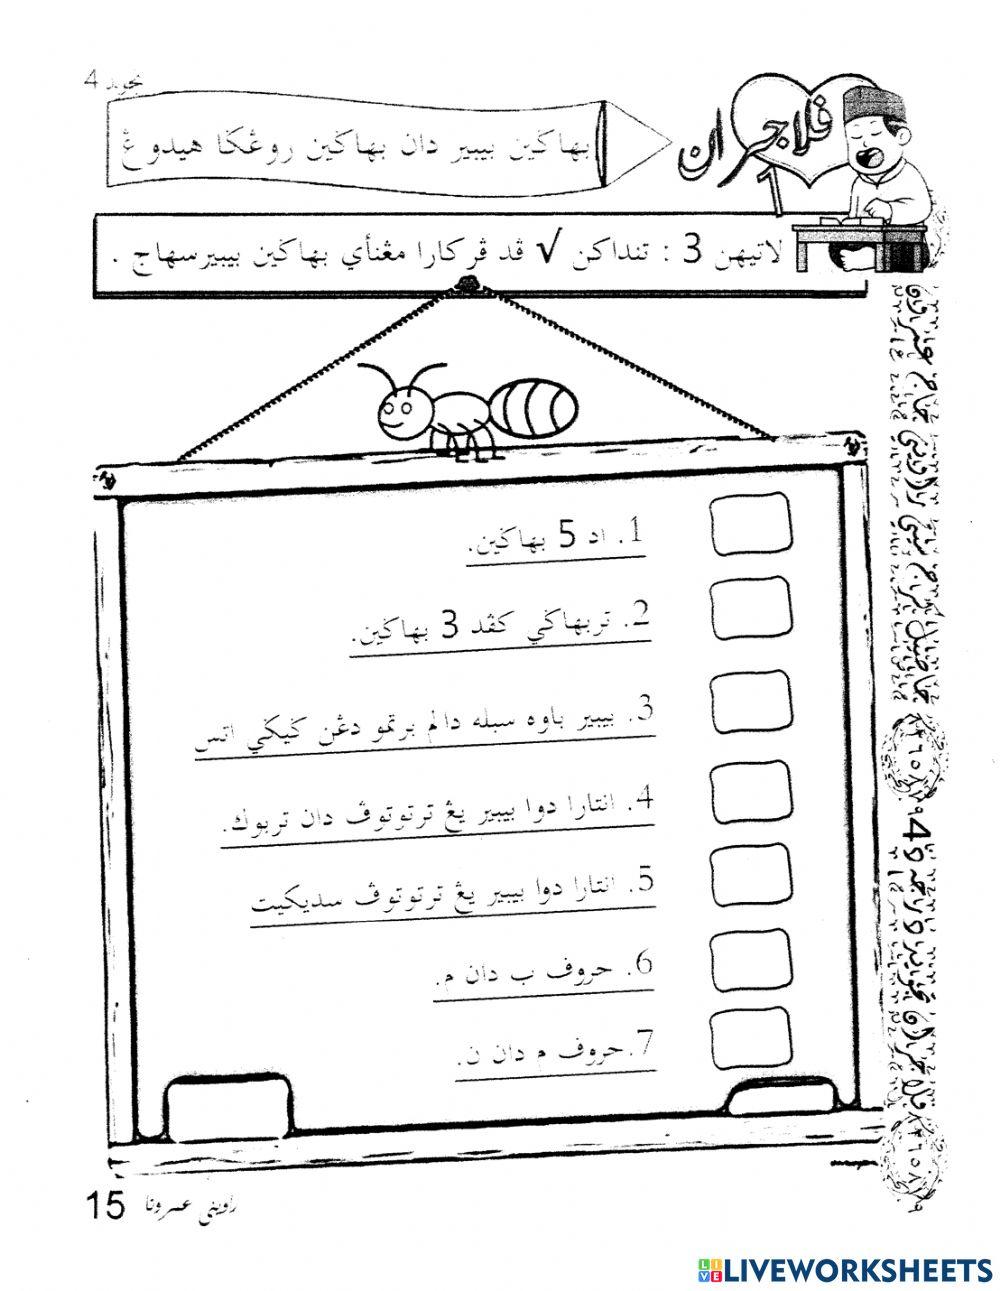 تجويد 4
ڤلاجران 1
بهاڬين بيبير دان بهاڬين روڠݢا هيدوڠ
لاتيهن 3 : تنداكن √ ڤد ڤركارا مڠنأي بهاڬين بيبيرسهاج .
1. اد 5 بهاڬين.
2. تربهاڬي كڤد 3 بهاڬين.
3. بيبير باوه سبله دالم برتمو دڠن ݢيݢي اتس
4. انتارا دوا بيبير يڠ ترتوتوڤ دان تربوك.
5. انتارا دوا بيبير يڠ ترتوتوڤ سديكيت
6. حروف ب دان م.
7. حروف م دان ن.
15
LIVEWORKSHEETS